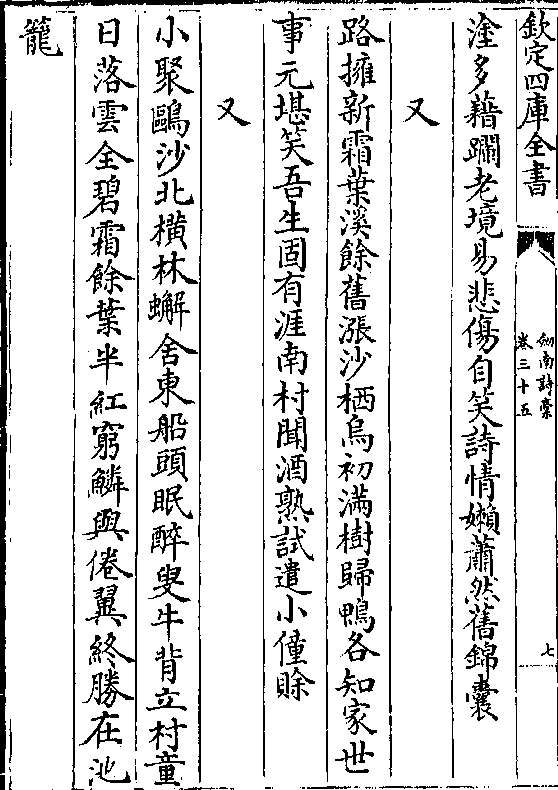 欽定四庫全書
劒南詩槀
卷三十五
七
塗多藉躙老境易悲傷自笑詩情嬾蕭然舊錦囊
又
路擁新霜葉溪餘舊漲沙栖烏初滿樹歸鴨各知家世
事元堪笑吾生固有涯南村聞酒熟試遣小僮賖
又
小聚鷗沙北橫林蠏舍東船頭眠醉叟牛背立村童
日落雲全碧霜餘葉半紅窮鱗與倦翼終勝在池
籠